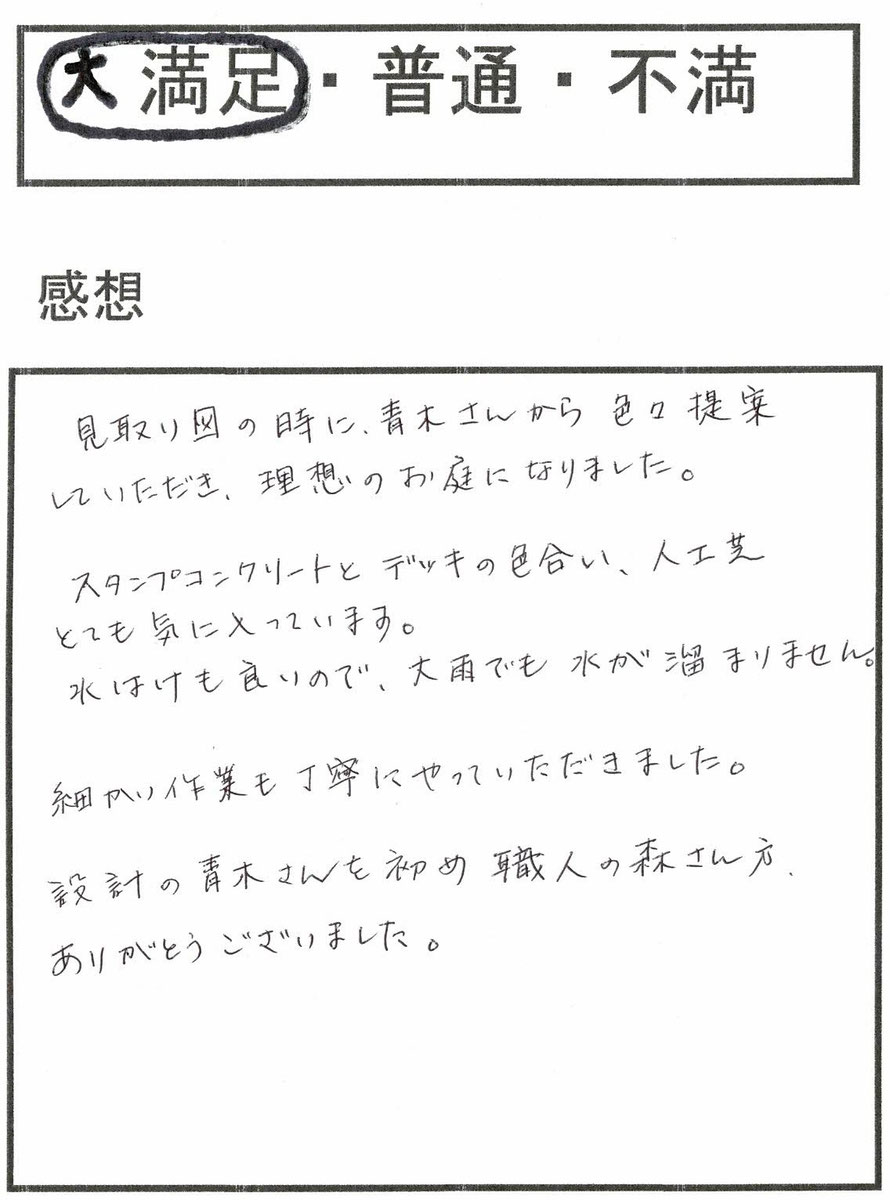 大満足・普通・不満
感想
見取り図の時に、青木さんから色々提案
していただき、理想のお庭になりました。
スタンプコンクリートとデッキの色合い、人工芝
とても気に入っています。
水はけも良いので、大雨でも水が溜まりません。
細かい作業も丁寧にやっていただきました。
設計の青木さんを初め職人の森さん方、
ありがとうございました。